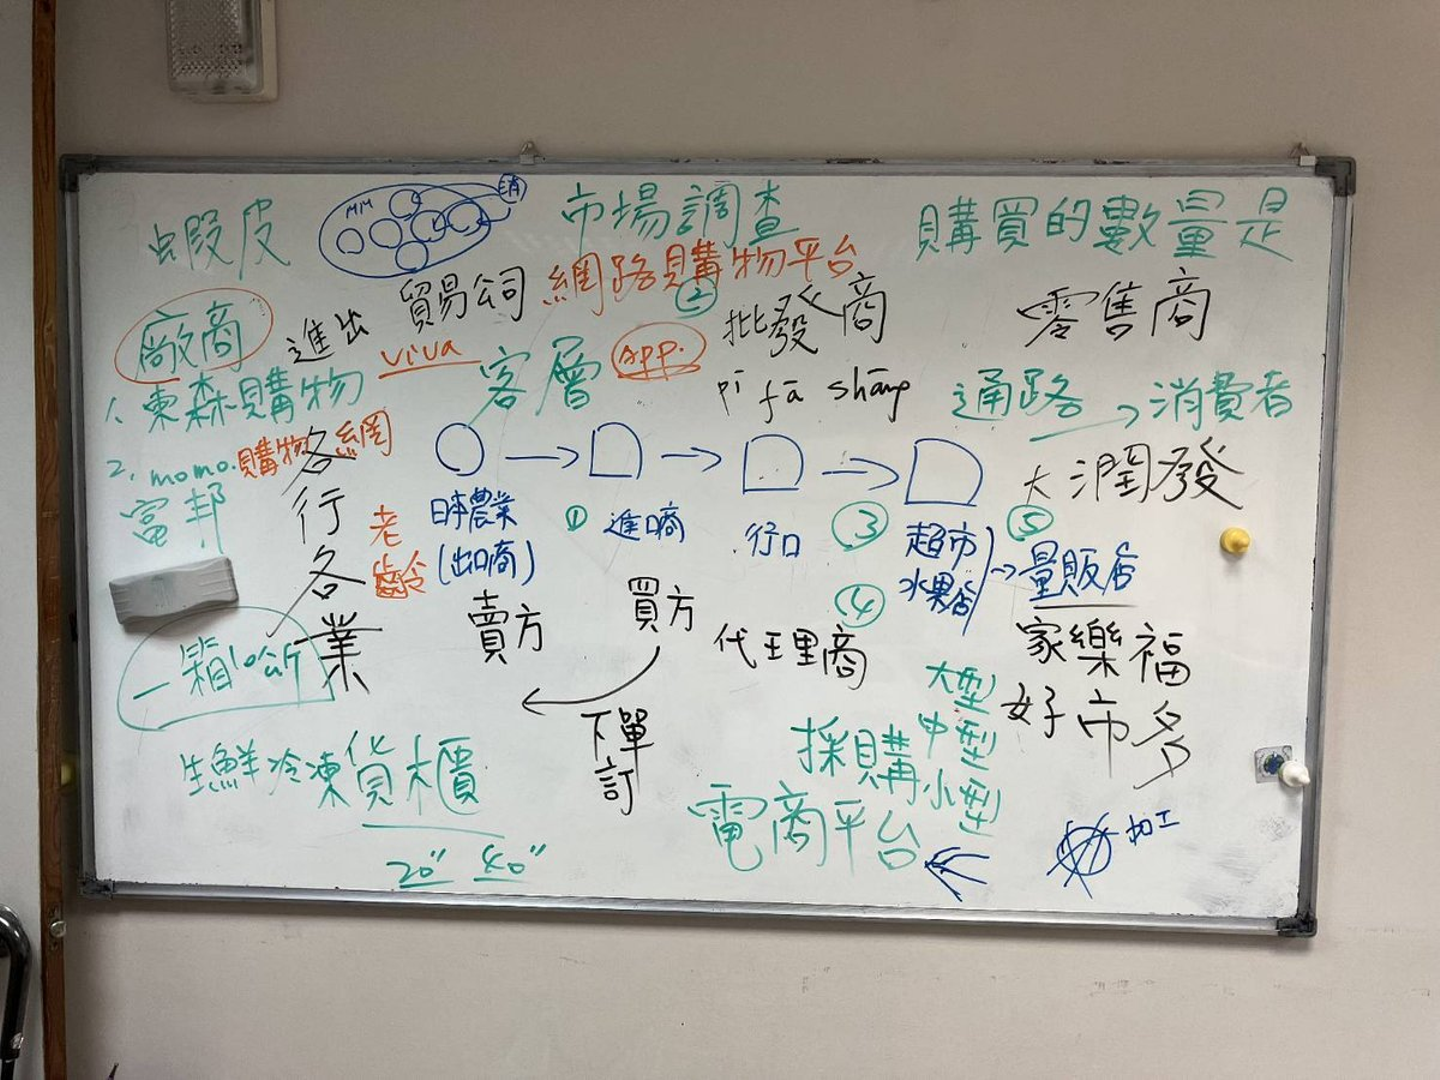 蝦皮
消
市場調查
購買的數量是
網路購物平台
廠商
進出
貿易公司
②
批發商
零售商
viva
客層
app.
pī fā shāng
通路 → 消費者
1. 東森購物
2. momo.購物網
富邦
各行各業
老齡
日本農業
(出口商)
① 進口商
行口
③
超市
水果店
⑤
量販店
大潤發
④
賣方
買方
代理商
家樂福
好市多
一箱10公斤
下單
訂
大型
中型
小型
採購
生鮮冷凍貨櫃
20" 40"
電商平台
加工